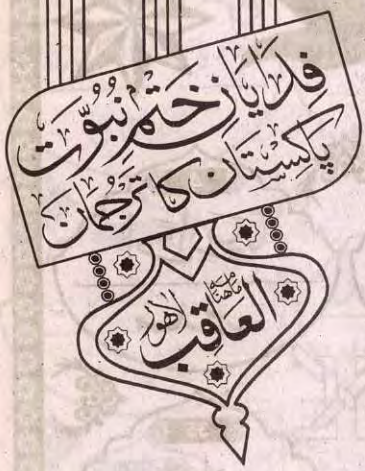 فدایانِ ختمِ نبوّت
پاکستان کا ترجمان
ماہنامہ
العاقب لاہور